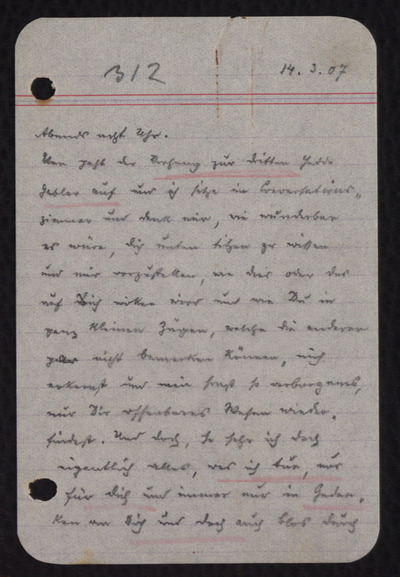 312
14.3.07
Abends acht Uhr.
Nun geht der Vorhang zur dritten Hedda
Gabler auf und ich sitze im Conversations-
zimmer und denk mir, wie wunderbar
es wäre, Dich unten sitzen zu wissen
und mir vorzustellen, wie dies oder das
auf Dich wirken wird und wie Du in
ganz kleinen Zügen, welche die anderen
gar nicht bemerken können, mich
erkennst und mein sonst so verborgenes,
nur Dir offenbares Wesen wieder-
findest. Und doch, so sehr ich doch
eigentlich alles, was ich tue, nur
für Dich und immer nur in Gedan-
ken an Dich und doch auch blos durch